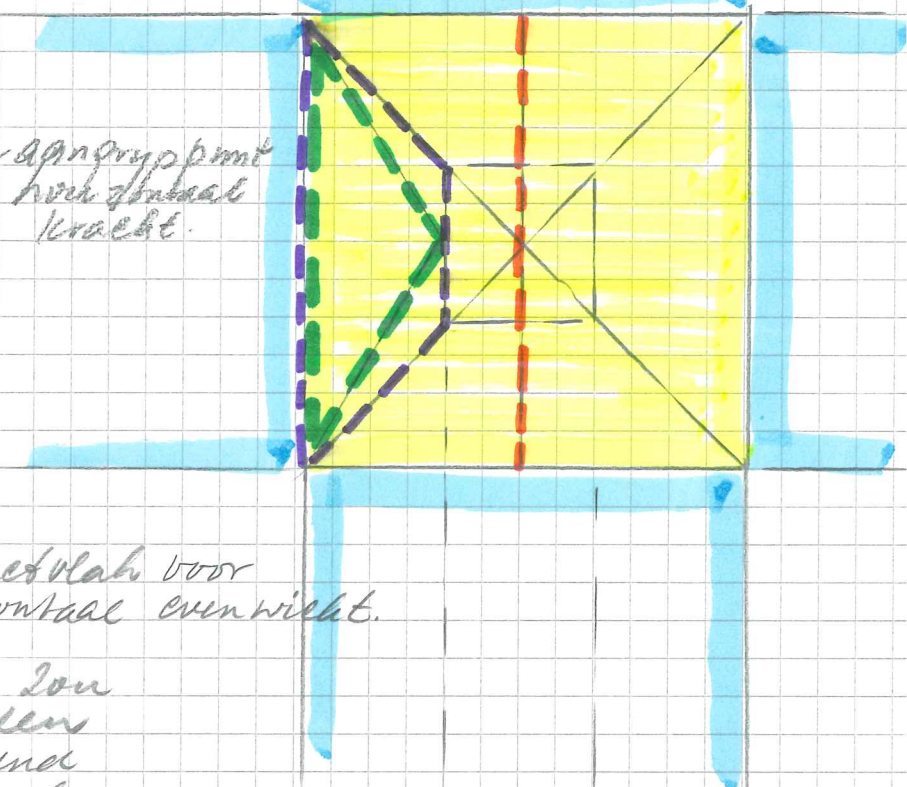 aangrijppunt
horizontaal
kracht.
etvlak voor
ontaal evenwicht.
zou
den
und